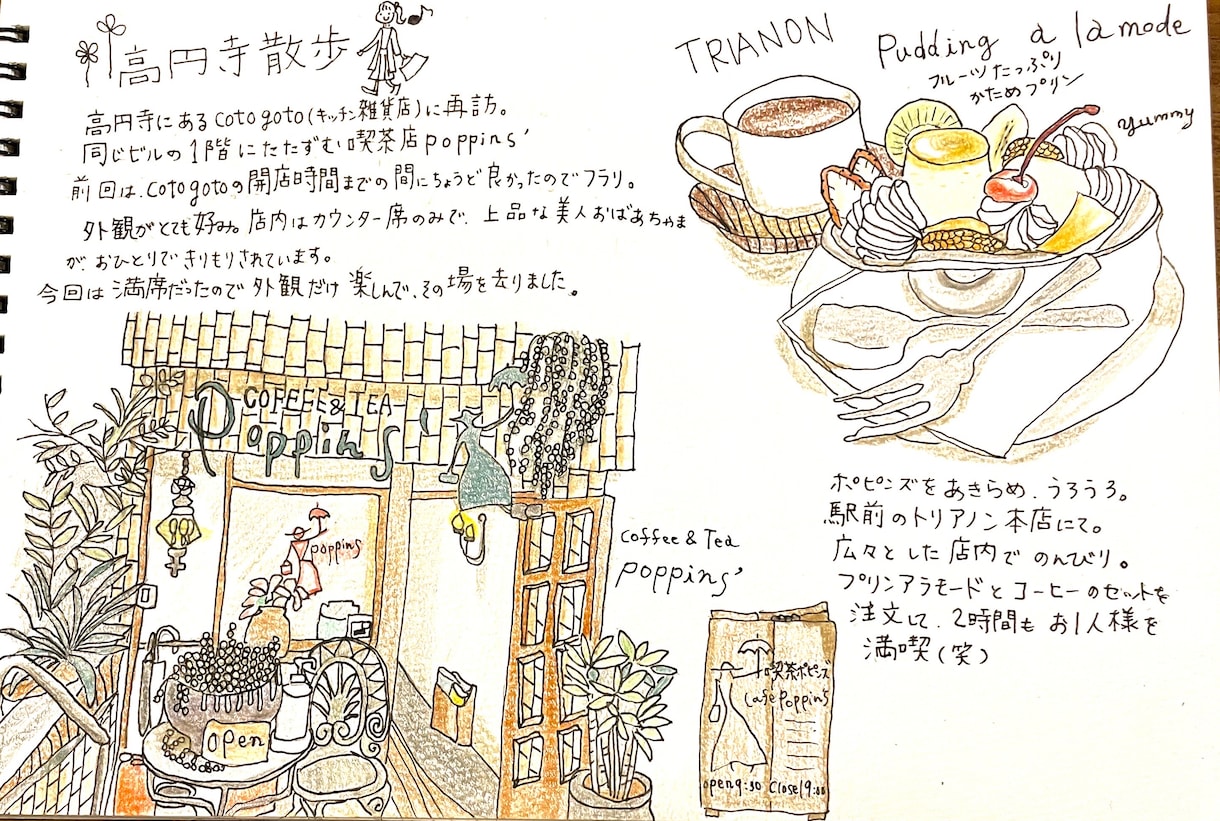 高円寺散歩
高円寺にあるcotogoto(キッチン雑貨店)に再訪。
同じビルの1階にたたずむ喫茶店poppins'
前回は、cotogotoの開店時間までの間にちょうど良かったのでフラリ。
外観がとても好み。店内はカウンター席のみで、上品な美人おばあちゃま
が、おひとりできりもりされています。
今回は満席だったので外観だけ楽しんで、その場を去りました。
COFEEE & TEA
Poppins'
poppins
open
coffee & Tea
poppins'
喫茶ポピンズ
Cafe Poppins
open9:30 Close19:00
TRIANON
Pudding a la mode
フルーツたっぷり
かためプリン
yummy
ポピンズをあきらめ、うろうろ。
駅前のトリアノン本店にて。
広々とした店内でのんびり。
プリンアラモードとコーヒーのセットを
注文して、2時間もお1人様を
満喫(笑)